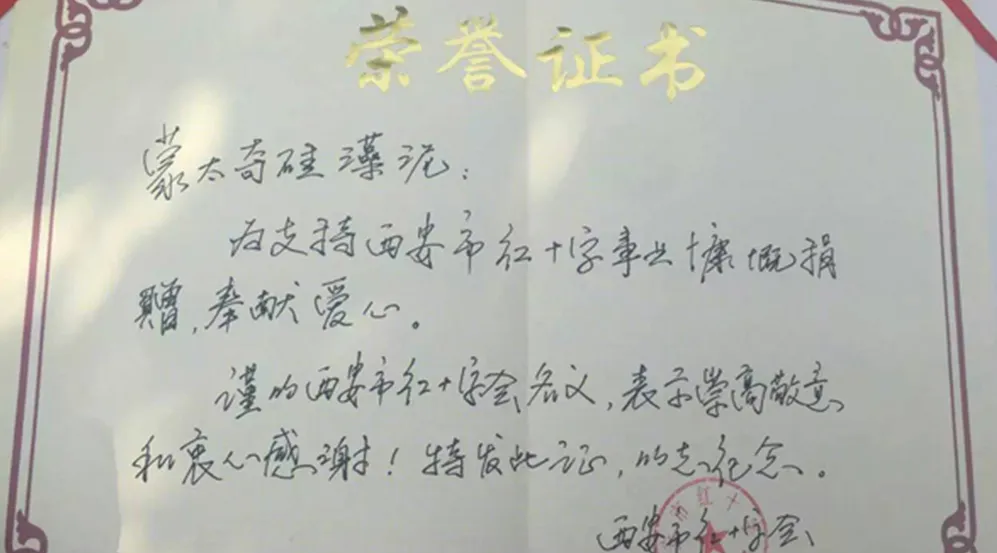 荣誉证书
蒙太奇硅藻泥：
为支持西安市红十字事业慷慨捐
赠，奉献爱心。
谨以西安市红十字会名义，表示崇高敬意
和衷心感谢！特发此证，以志纪念。
西安市红十字会